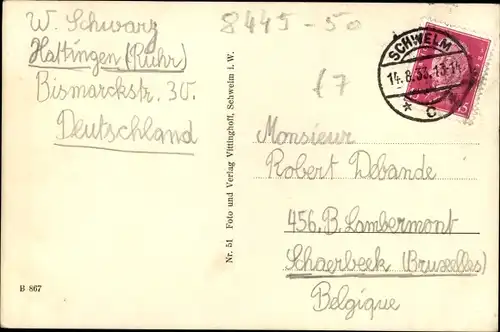 W. Schwarz
Hattingen (Ruhr)
Bismarckstr. 30.
Deutschland
8445-50
17
SCHWELM
14.8.33.13-14
* C
Nr. 51 Foto und Verlag Vittinghoff, Schwelm i. W.
Monsieur
Robert Debande
456. B. Lambermont
Schaerbeek (Bruxelles)
Belgique
B 867